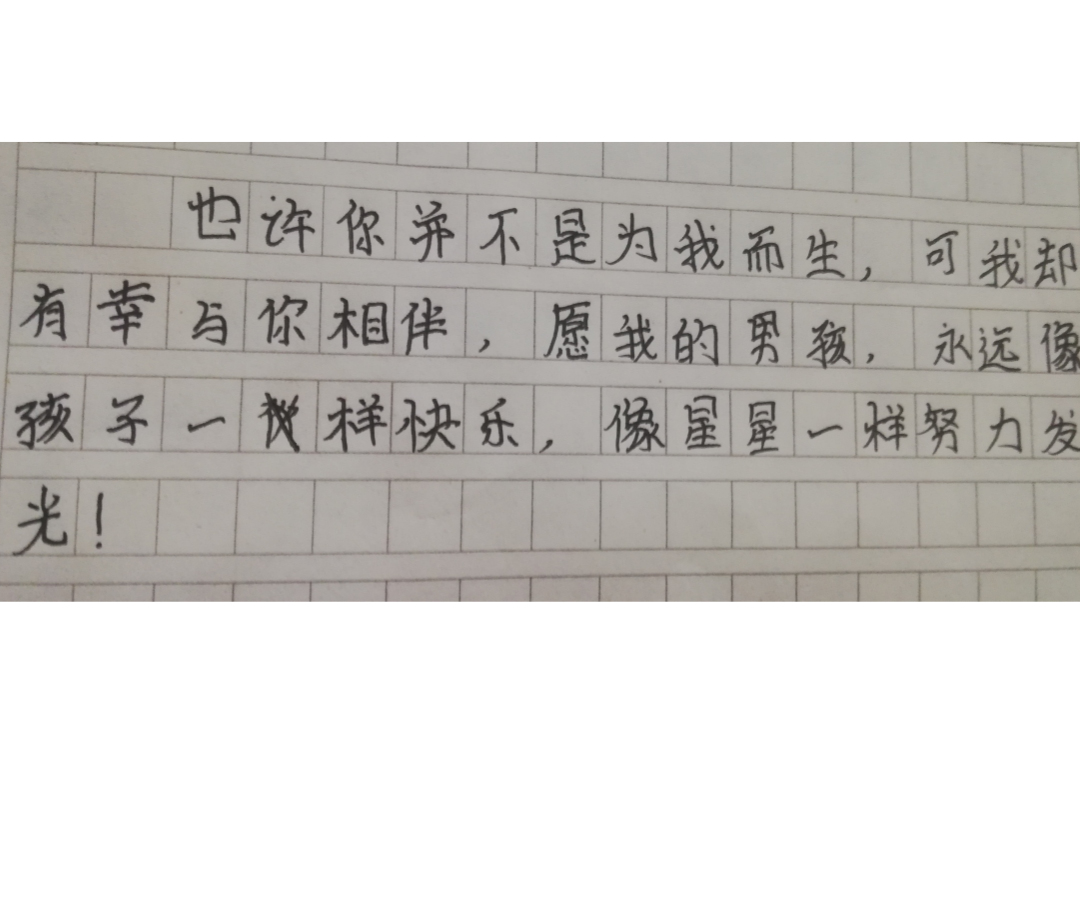 也许你并不是为我而生,可我却
有幸与你相伴,愿我的男孩,永远像
孩子一样快乐,像星星一样努力发
光!